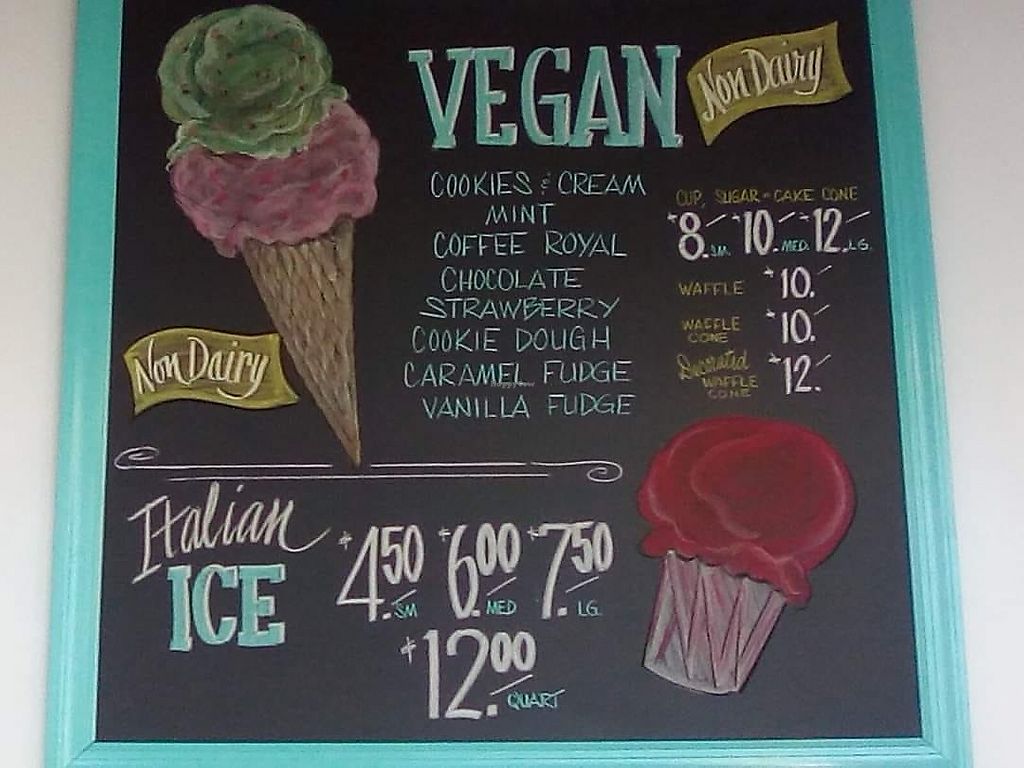 VEGAN
Non Dairy
COOKIES & CREAM
MINT
COFFEE ROYAL
CHOCOLATE
STRAWBERRY
COOKIE DOUGH
CARAMEL FUDGE
VANILLA FUDGE
CUP, SUGAR - CAKE CONE
$8. SM. $10. MED. $12. LG.
WAFFLE $10.
WAFFLE
CONE $10.
Decorated
WAFFLE
CONE $12.
Non Dairy
HappyCow
Italian
ICE
$4.50 SM $6.00 MED $7.50 LG.
$12.00 QUART